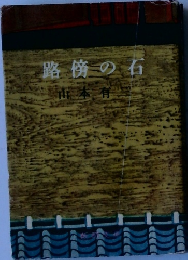 路傍の石
山本有三